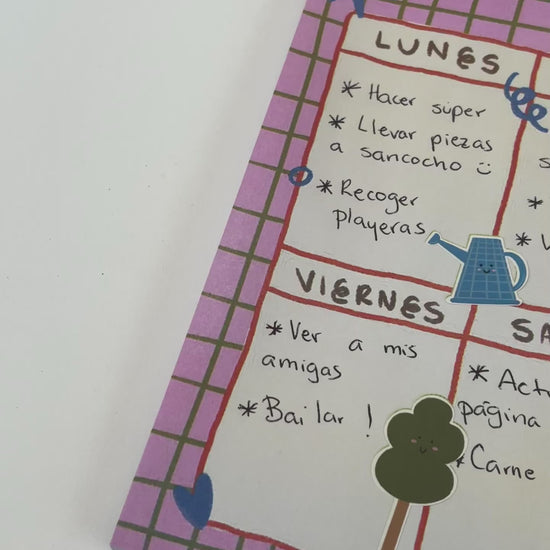 LUNES
* Hacer súper
* Llevar piezas
a sancocho ü
* Recoger
playeras
*
*
VIERNES
* Ver a mis
amigas
* Bailar !
SA
* Act
página
* Carne